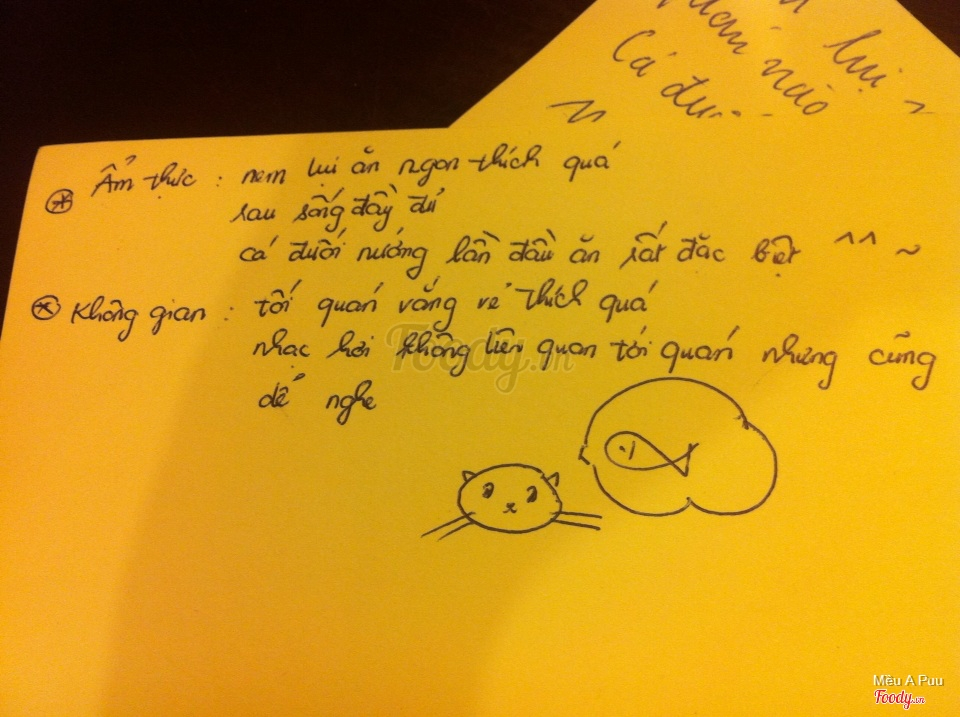 lụi
nào
Cá đuố
Ẩm thực : nem lụi ăn ngon thích quá
rau sống đầy đủ
cá đuối nướng lần đầu ăn rất đặc biệt ^^ ~
Không gian : tối quán vắng vẻ thích quá
nhạc hơi không liên quan tới quán nhưng cũng
dễ nghe
Foody.vn
Mều A Puu
Foody.vn